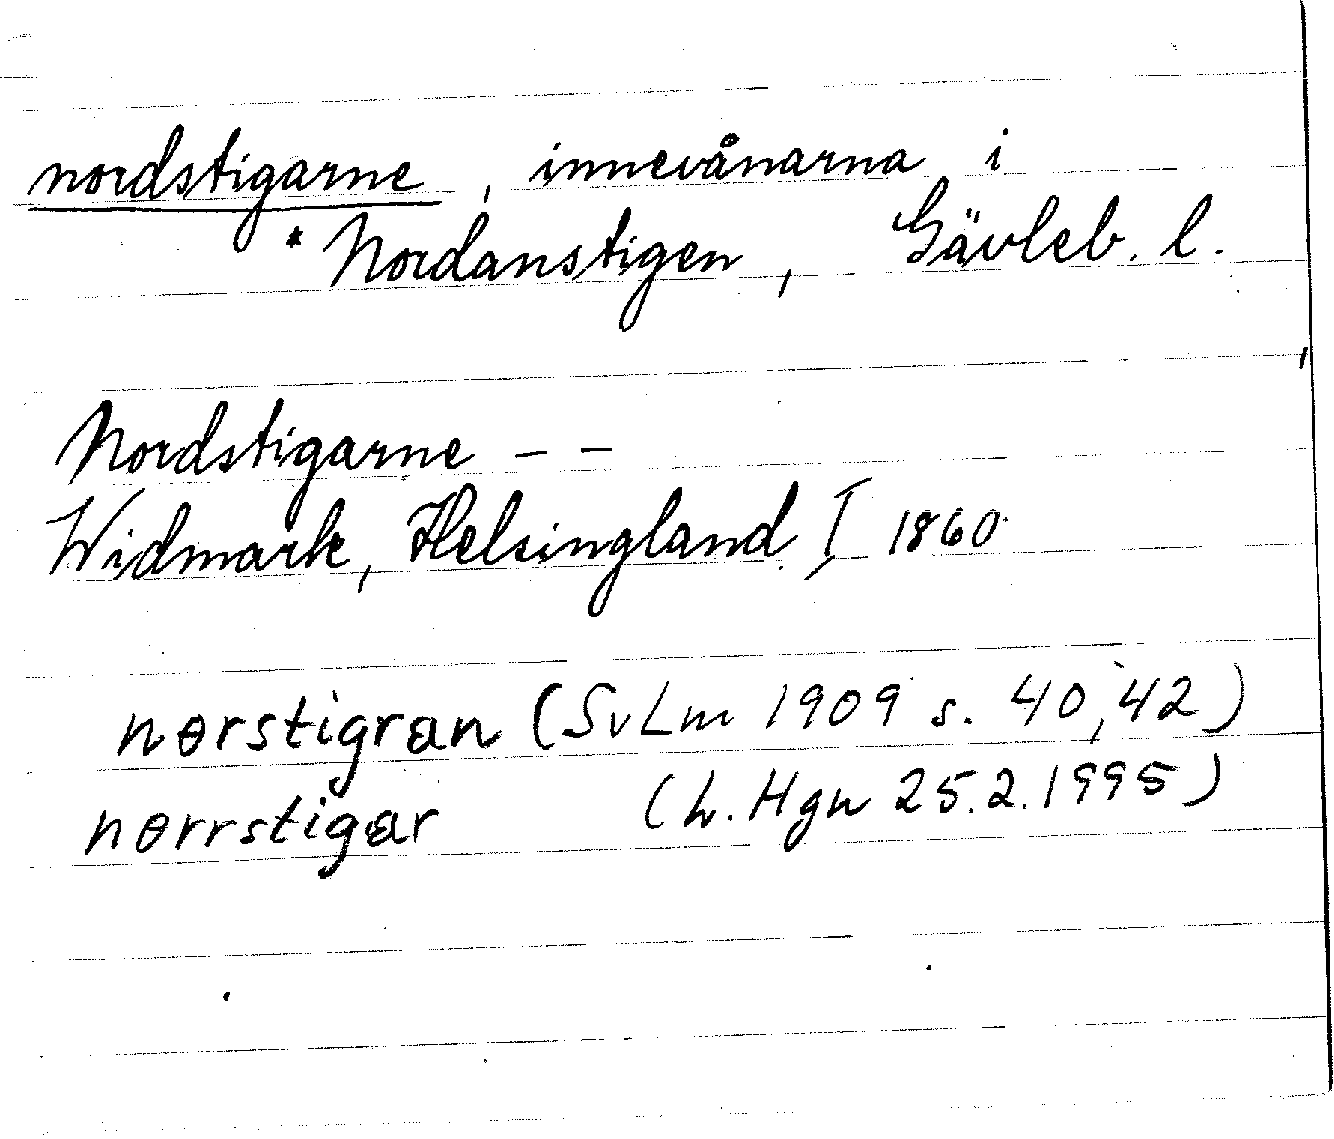 nordstigarne, innevånarna i
* Nordanstigen, Gävleb. l.
Nordstigarne – –
Widmark, Helsingland I 1860
nørstigran (SvLm 1909 s. 40, 42)
nørrstigar (L. Hgn 25.2.1995)